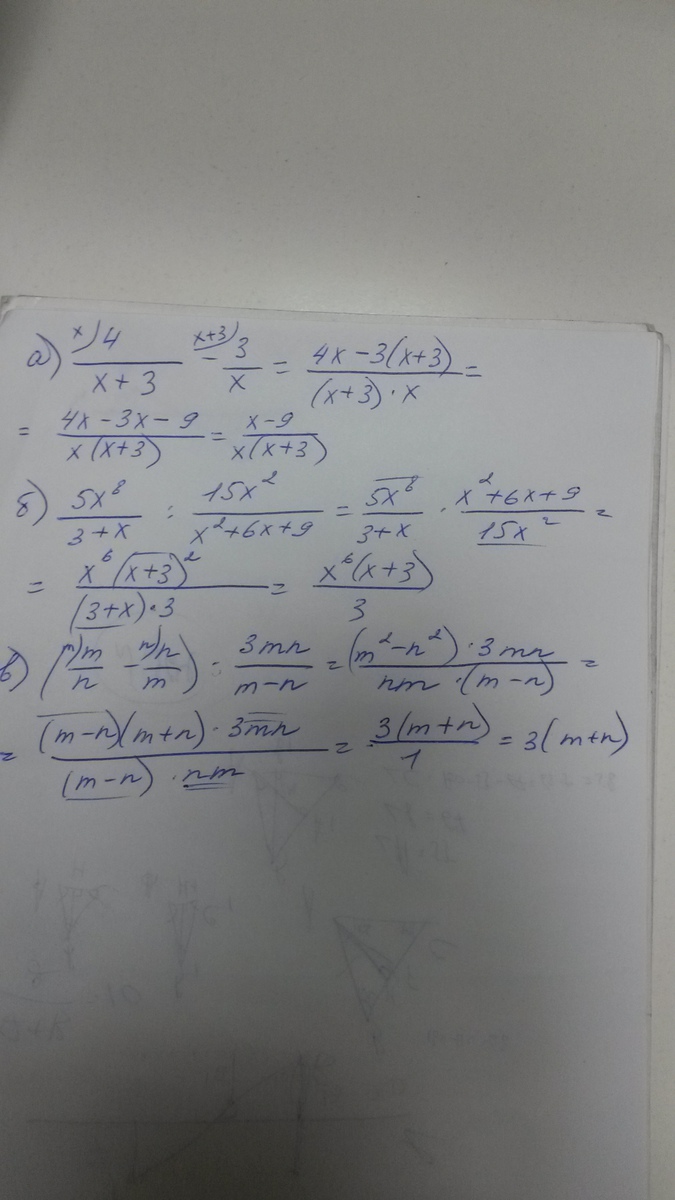 а) x)4/(x+3) - x+3)3/x = (4x-3(x+3))/((x+3)·x) =
= (4x-3x-9)/(x(x+3)) = (x-9)/(x(x+3))
б) 5x⁸/(3+x) : 15x²/(x²+6x+9) = 5x⁸/(3+x) · (x²+6x+9)/(15x²) =
= (x⁶(x+3)²)/((3+x)·3) = (x⁶(x+3))/3
в) (m)m/n - n)n/m) · 3mn/(m-n) = ((m²-n²)·3mn)/(nm·(m-n)) =
= ((m-n)(m+n)·3mn)/((m-n)·nm) = 3(m+n)/1 = 3(m+n)